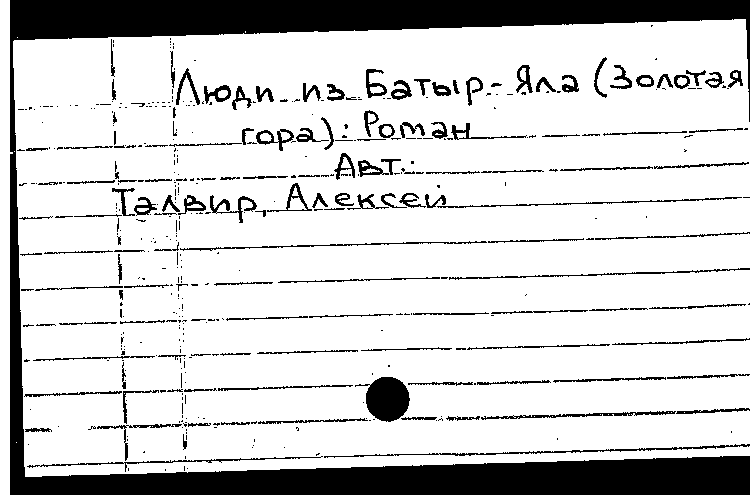 Люди из Батыр-Яла (Золотая
гора): Роман
Авт.:
Талвир, Алексей